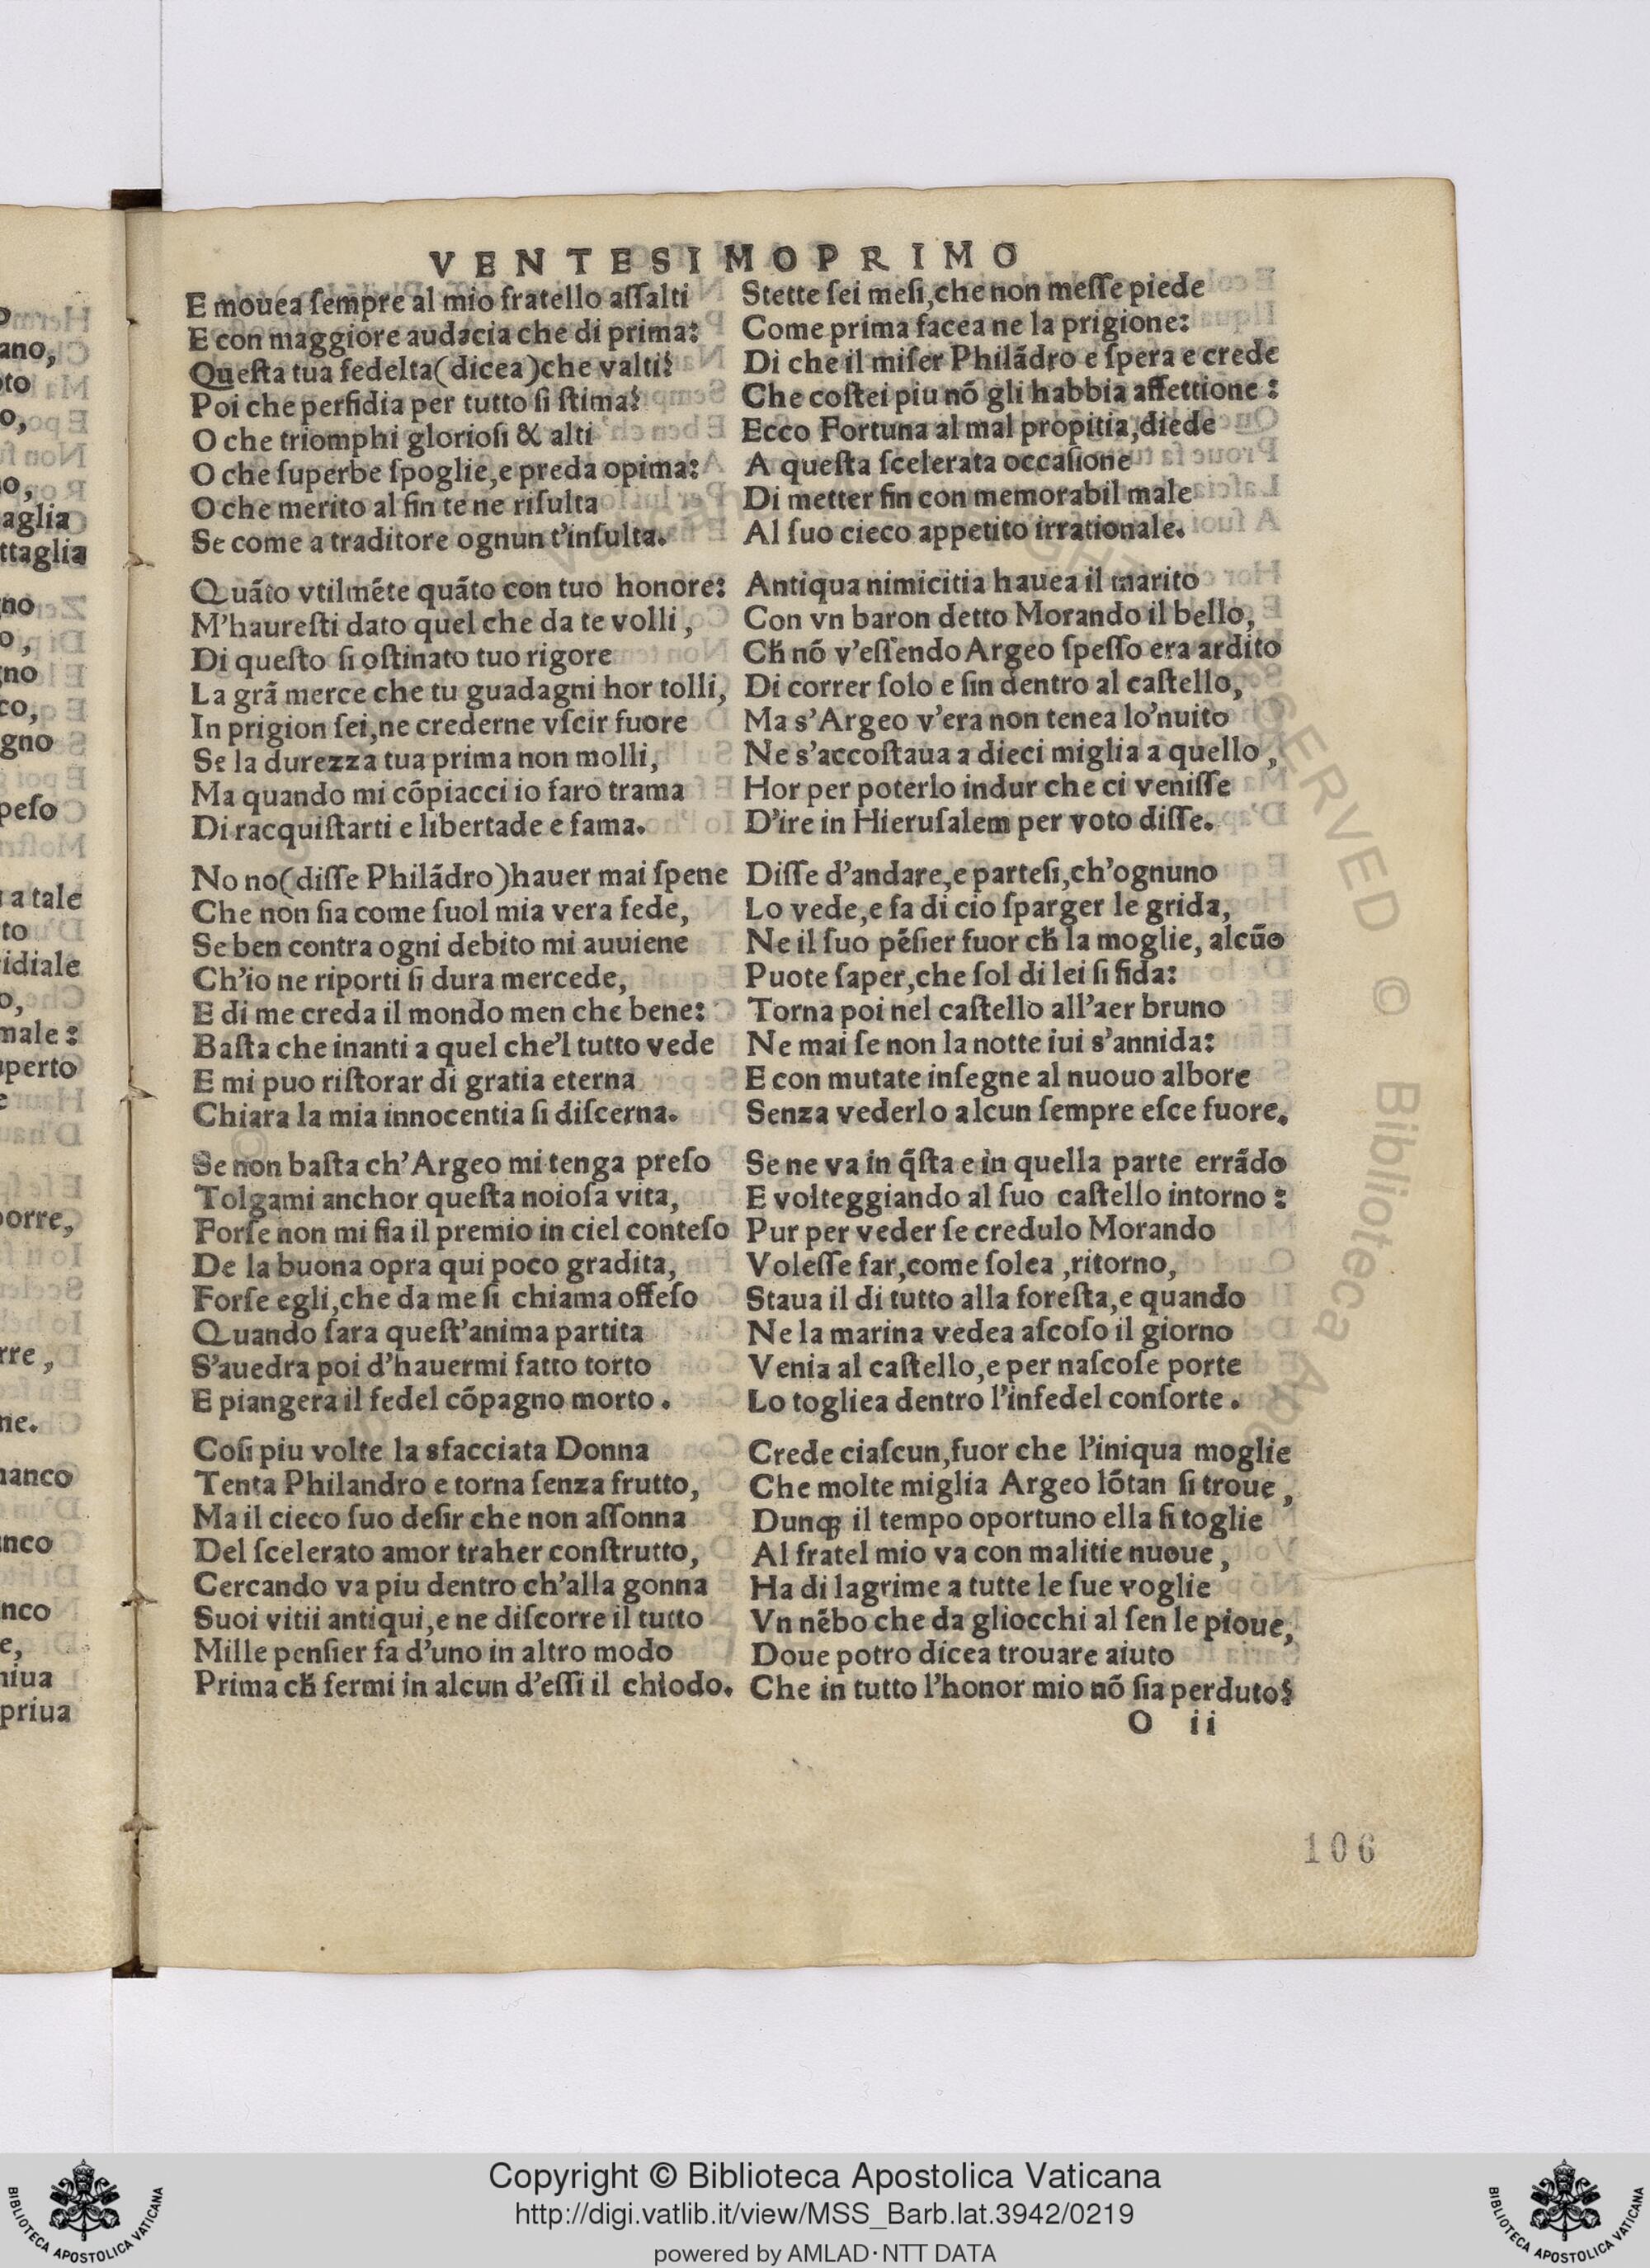 VENTESIMOPRIMO
E mouea ſempre al mio fratello aſſalti
E con maggiore audacia che di prima:
Queſta tua fedelta(dicea)che valti?
Poi che perfidia per tutto ſi ſtima?
O che triomphi glorioſi & alti
O che ſuperbe ſpoglie,e preda opima:
O che merito al fin te ne riſulta
Se come a traditore ognun t'inſulta.
Quãto vtilmẽte quãto con tuo honore:
M'haureſti dato quel che da te volli,
Di queſto ſi oſtinato tuo rigore
La grã merce che tu guadagni hor tolli,
In prigion ſei,ne crederne vſcir fuore
Se la durezza tua prima non molli,
Ma quando mi cõpiacci io faro trama
Di racquiſtarti e libertade e fama.
No no(diſſe Philãdro)hauer mai ſpene
Che non ſia come ſuol mia vera fede,
Se ben contra ogni debito mi auuiene
Ch'io ne riporti ſi dura mercede,
E di me creda il mondo men che bene:
Baſta che inanti a quel che'l tutto vede
E mi puo riſtorar di gratia eterna
Chiara la mia innocentia ſi diſcerna.
Se non baſta ch'Argeo mi tenga preſo
Tolgami anchor queſta noioſa vita,
Forſe non mi fia il premio in ciel conteſo
De la buona opra qui poco gradita,
Forſe egli,che da me ſi chiama offeſo
Quando ſara queſt'anima partita
S'auedra poi d'hauermi fatto torto
E piangera il fedel cõpagno morto.
Coſi piu volte la sfacciata Donna
Tenta Philandro e torna ſenza frutto,
Ma il cieco ſuo deſir che non aſſonna
Del ſcelerato amor traher conſtrutto,
Cercando va piu dentro ch'alla gonna
Suoi vitii antiqui,e ne diſcorre il tutto
Mille penſier fa d'uno in altro modo
Prima cħ fermi in alcun d'eſſi il chiodo.
Stette ſei meſi,che non meſſe piede
Come prima facea ne la prigione:
Di che il miſer Philãdro e ſpera e crede
Che coſtei piu nõ gli habbia affettione:
Ecco Fortuna al mal propitia,diede
A queſta ſcelerata occaſione
Di metter fin con memorabil male
Al ſuo cieco appetito irrationale.
Antiqua nimicitia hauea il marito
Con vn baron detto Morando il bello,
Cħ nõ v'eſſendo Argeo ſpeſſo era ardito
Di correr ſolo e ſin dentro al caſtello,
Ma s'Argeo v'era non tenea lo'nuito
Ne s'accoſtaua a dieci miglia a quello,
Hor per poterlo indur che ci veniſſe
D'ire in Hieruſalem per voto diſſe.
Diſſe d'andare,e parteſi,ch'ognuno
Lo vede,e fa di cio ſparger le grida,
Ne il ſuo pẽſier fuor cħ la moglie, alcũo
Puote ſaper,che ſol di lei ſi fida:
Torna poi nel caſtello all'aer bruno
Ne mai ſe non la notte iui s'annida:
E con mutate inſegne al nuouo albore
Senza vederlo alcun ſempre eſce fuore.
Se ne va in q̃ſta e in quella parte errãdo
E volteggiando al ſuo caſtello intorno:
Pur per veder ſe credulo Morando
Voleſſe far,come ſolea,ritorno,
Staua il di tutto alla foreſta,e quando
Ne la marina vedea aſcoſo il giorno
Venia al caſtello,e per naſcoſe porte
Lo togliea dentro l'infedel conſorte.
Crede ciaſcun,fuor che l'iniqua moglie
Che molte miglia Argeo lõtan ſi troue,
Dunqꝫ il tempo oportuno ella ſi toglie
Al fratel mio va con malitie nuoue,
Ha di lagrime a tutte le ſue voglie
Vn nẽbo che da gliocchi al ſen le pioue,
Doue potro dicea trouare aiuto
Che in tutto l'honor mio nõ ſia perduto?
O ii
106
Copyright © Biblioteca Apostolica Vaticana
http://digi.vatlib.it/view/MSS_Barb.lat.3942/0219
powered by AMLAD·NTT DATA
BIBLIOTECA APOSTOLICA VATICANA
BIBLIOTECA APOSTOLICA VATICANA